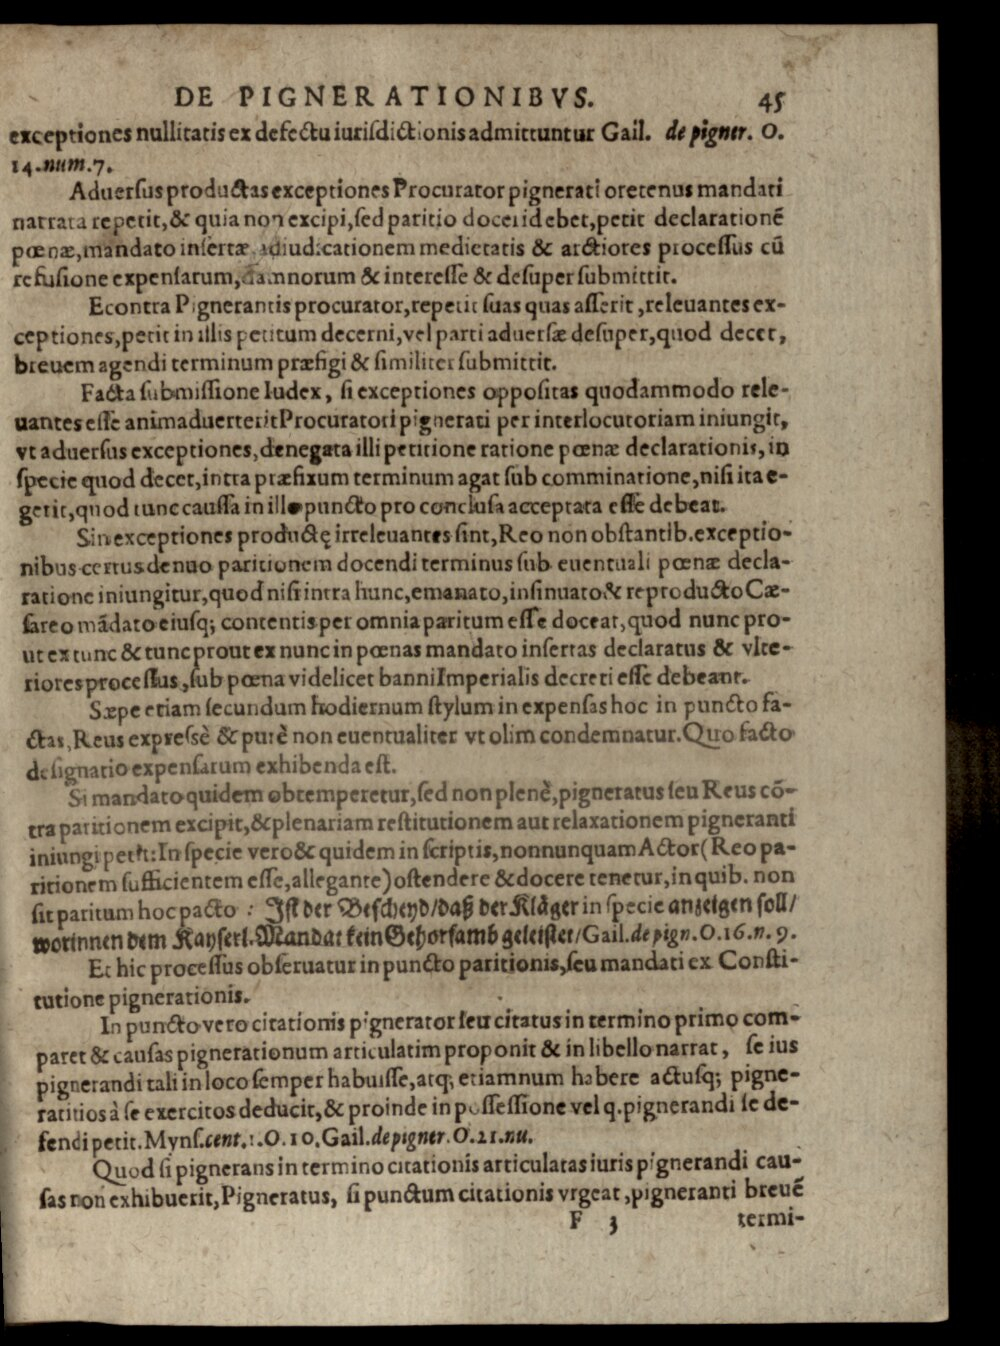 DE PIGNERATIONIBVS. 45
exceptiones nullitatis ex defectu iurisdictionis admittuntur Gail. de pigner. O.
14. num. 7.
Aduersus productas exceptiones Procurator pignerati oretenus mandati
narrata repetit, & quia non excipi, sed paritio doceri debet, petit declarationē
pœnæ, mandato insertæ, adiudicationem medietatis & arctiores processus cū
refusione expensarum, damnorum & interesse & desuper submittit.
Econtra Pignerantis procurator, repetit suas quas asserit, releuantes ex-
ceptiones, petit in illis petitum decerni, vel parti aduersæ desuper, quod decet,
breuem agendi terminum præfigi & similiter submittit.
Facta submissione Iudex, si exceptiones oppositas quodammodo rele-
uantes esse animaduerterit Procuratori pignerati per interlocutoriam iniungit,
vt aduersus exceptiones, denegata illi petitione ratione pœnæ declarationis, in
specie quod decet, intra præfixum terminum agat sub comminatione, nisi ita e-
gerit, quod tunc caussa in illo puncto pro conclusa acceptata esse debeat.
Sin exceptiones productę irreleuantes sint, Reo non obstantib. exceptio-
nibus certus denuo paritionem docendi terminus sub euentuali pœnæ decla-
ratione iniungitur, quod nisi intra hunc, emanato, insinuato & reproducto Cæ-
sareo mādato eiusq; contentis per omnia paritum esse doceat, quod nunc pro-
ut ex tunc & tunc prout ex nunc in pœnas mandato insertas declaratus & vlte-
riores processus, sub pœna videlicet banni Imperialis decreti esse debeant.
Sæpe etiam secundum hodiernum stylum in expensas hoc in puncto fa-
ctas, Reus expressè & purè non euentualiter vt olim condemnatur. Quo facto
designatio expensarum exhibenda est.
Si mandato quidem obtemperetur, sed non plenè, pigneratus seu Reus cō-
tra paritionem excipit, & plenariam restitutionem aut relaxationem pigneranti
iniungi petit: In specie vero & quidem in scriptis, nonnunquam Actor (Reo pa-
ritionem sufficientem esse, allegante) ostendere & docere tenetur, in quib. non
sit paritum hoc pacto : Ist der Bescheyd/ daß der Kläger in specie anzeigen soll/
worinnen dem Kayserl. Mandat kein Gehorsamb geleistet/ Gail. de pign. O. 16. n. 9.
Et hic processus obseruatur in puncto paritionis, seu mandati ex Consti-
tutione pignerationis.
In puncto vero citationis pignerator seu citatus in termino primo com-
paret & causas pignerationum articulatim proponit & in libello narrat, se ius
pignerandi tali in loco semper habuisse, atq; etiamnum habere actusq; pigne-
ratitios à se exercitos deducit, & proinde in possessione vel q. pignerandi se de-
fendi petit. Myns. cent. 1. O. 10. Gail. de pigner. O. 21. nu.
Quod si pignerans in termino citationis articulatas iuris pignerandi cau-
sas non exhibuerit, Pigneratus, si punctum citationis vrgeat, pigneranti breuē
F 3 termi-